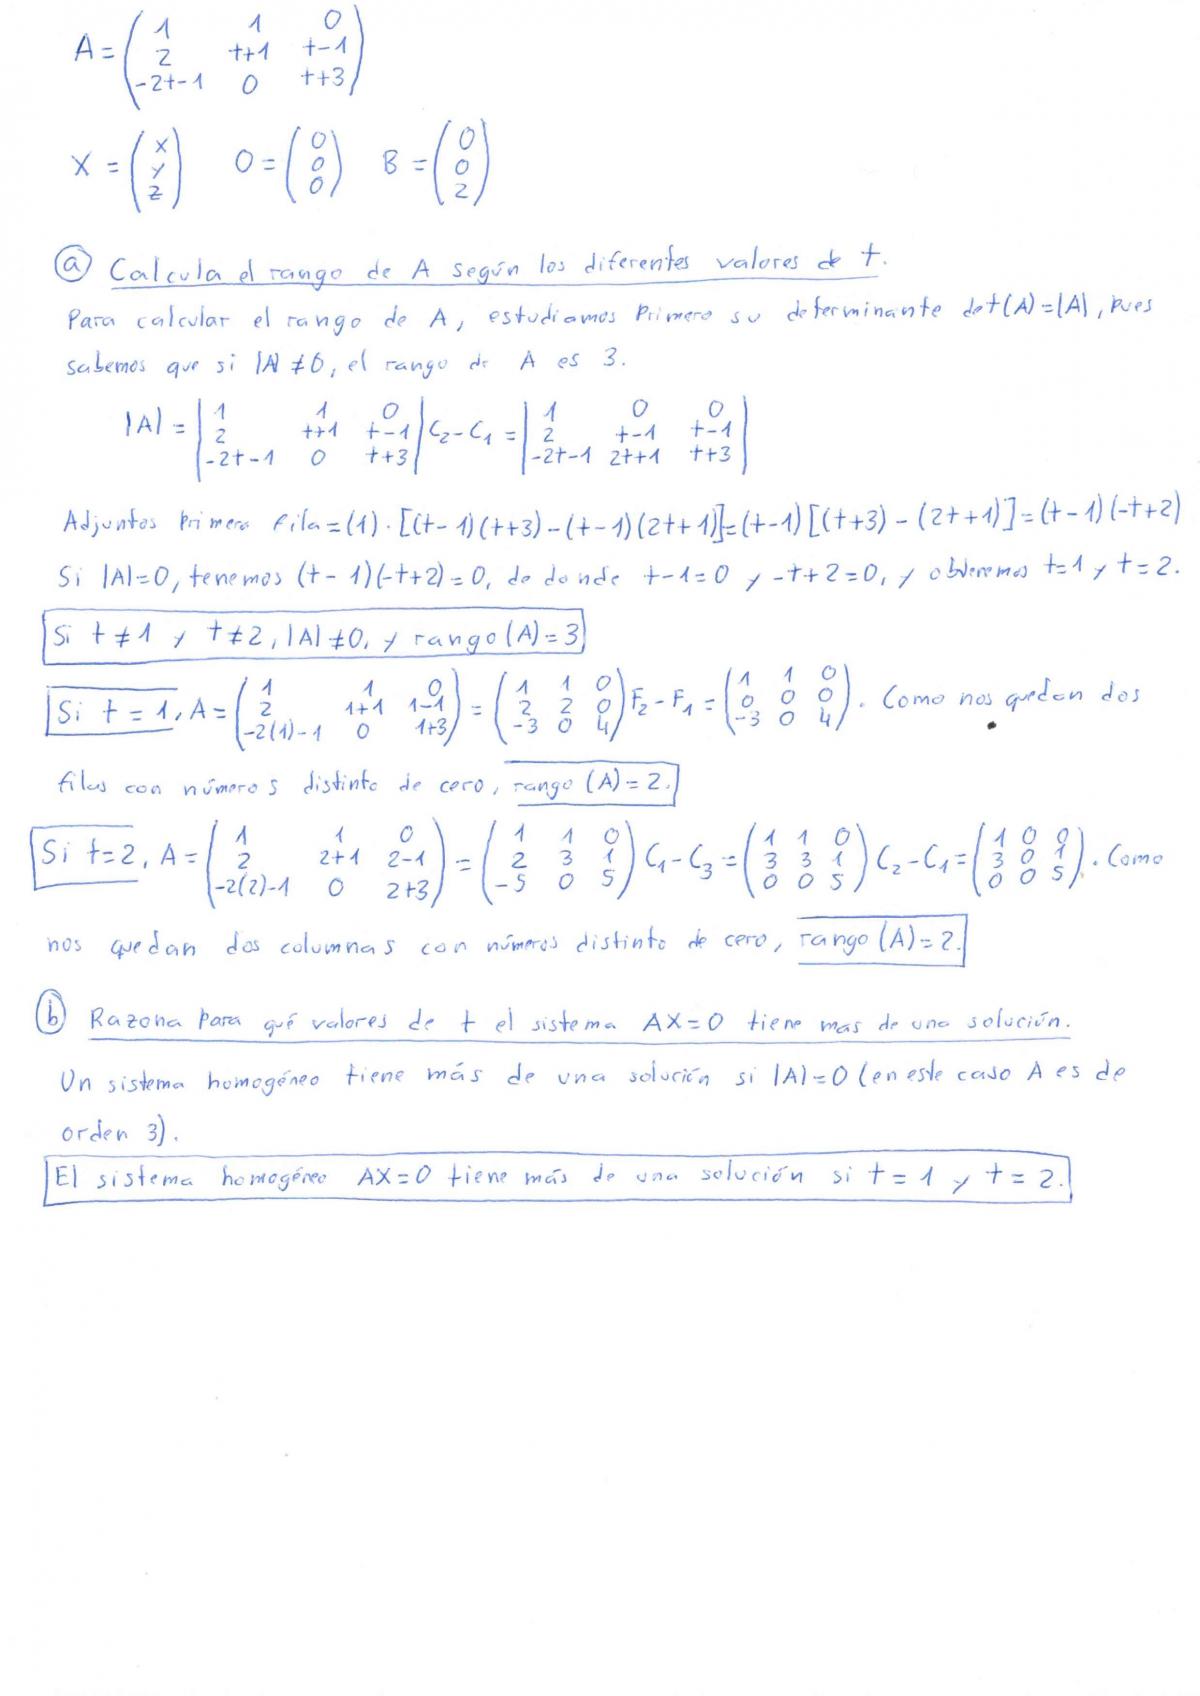 A = ( 1 1 0
2 t+1 t-1
-2t-1 0 t+3 )
X = ( x y z ) O = ( 0 0 0 ) B = ( 0 0 2 )
(a) Calcula el rango de A según los diferentes valores de t.
Para calcular el rango de A, estudiamos primero su determinante det(A) = |A|, pues
sabemos que si |A| ≠ 0, el rango de A es 3.
|A| = | 1 1 0 ; 2 t+1 t-1 ; -2t-1 0 t+3 | C2-C1 = | 1 0 0 ; 2 t-1 t-1 ; -2t-1 2t+1 t+3 |
Adjuntos primera fila = (1)·[(t-1)(t+3)-(t-1)(2t+1)] = (t-1)[(t+3)-(2t+1)] = (t-1)(-t+2)
Si |A|=0, tenemos (t-1)(-t+2)=0, de donde t-1=0 y -t+2=0, y obtenemos t=1 y t=2.
Si t ≠ 1 y t ≠ 2, |A| ≠ 0, y rango (A) = 3
Si t = 1, A = ( 1 1 0 ; 2 1+1 1-1 ; -2(1)-1 0 1+3 ) = ( 1 1 0 ; 2 2 0 ; -3 0 4 ) F2-F1 = ( 1 1 0 ; 0 0 0 ; -3 0 4 ). Como nos quedan dos
filas con números distinto de cero, rango (A) = 2.
Si t=2, A = ( 1 1 0 ; 2 2+1 2-1 ; -2(2)-1 0 2+3 ) = ( 1 1 0 ; 2 3 1 ; -5 0 5 ) C1-C3 = ( 1 1 0 ; 3 3 1 ; 0 0 5 ) C2-C1 = ( 1 0 0 ; 3 0 1 ; 0 0 5 ). Como
nos quedan dos columnas con números distinto de cero, rango (A) = 2.
(b) Razona para qué valores de t el sistema AX=0 tiene mas de una solución.
Un sistema homogéneo tiene más de una solución si |A|=0 (en este caso A es de
orden 3).
El sistema homogéneo AX=0 tiene más de una solución si t = 1 y t = 2.